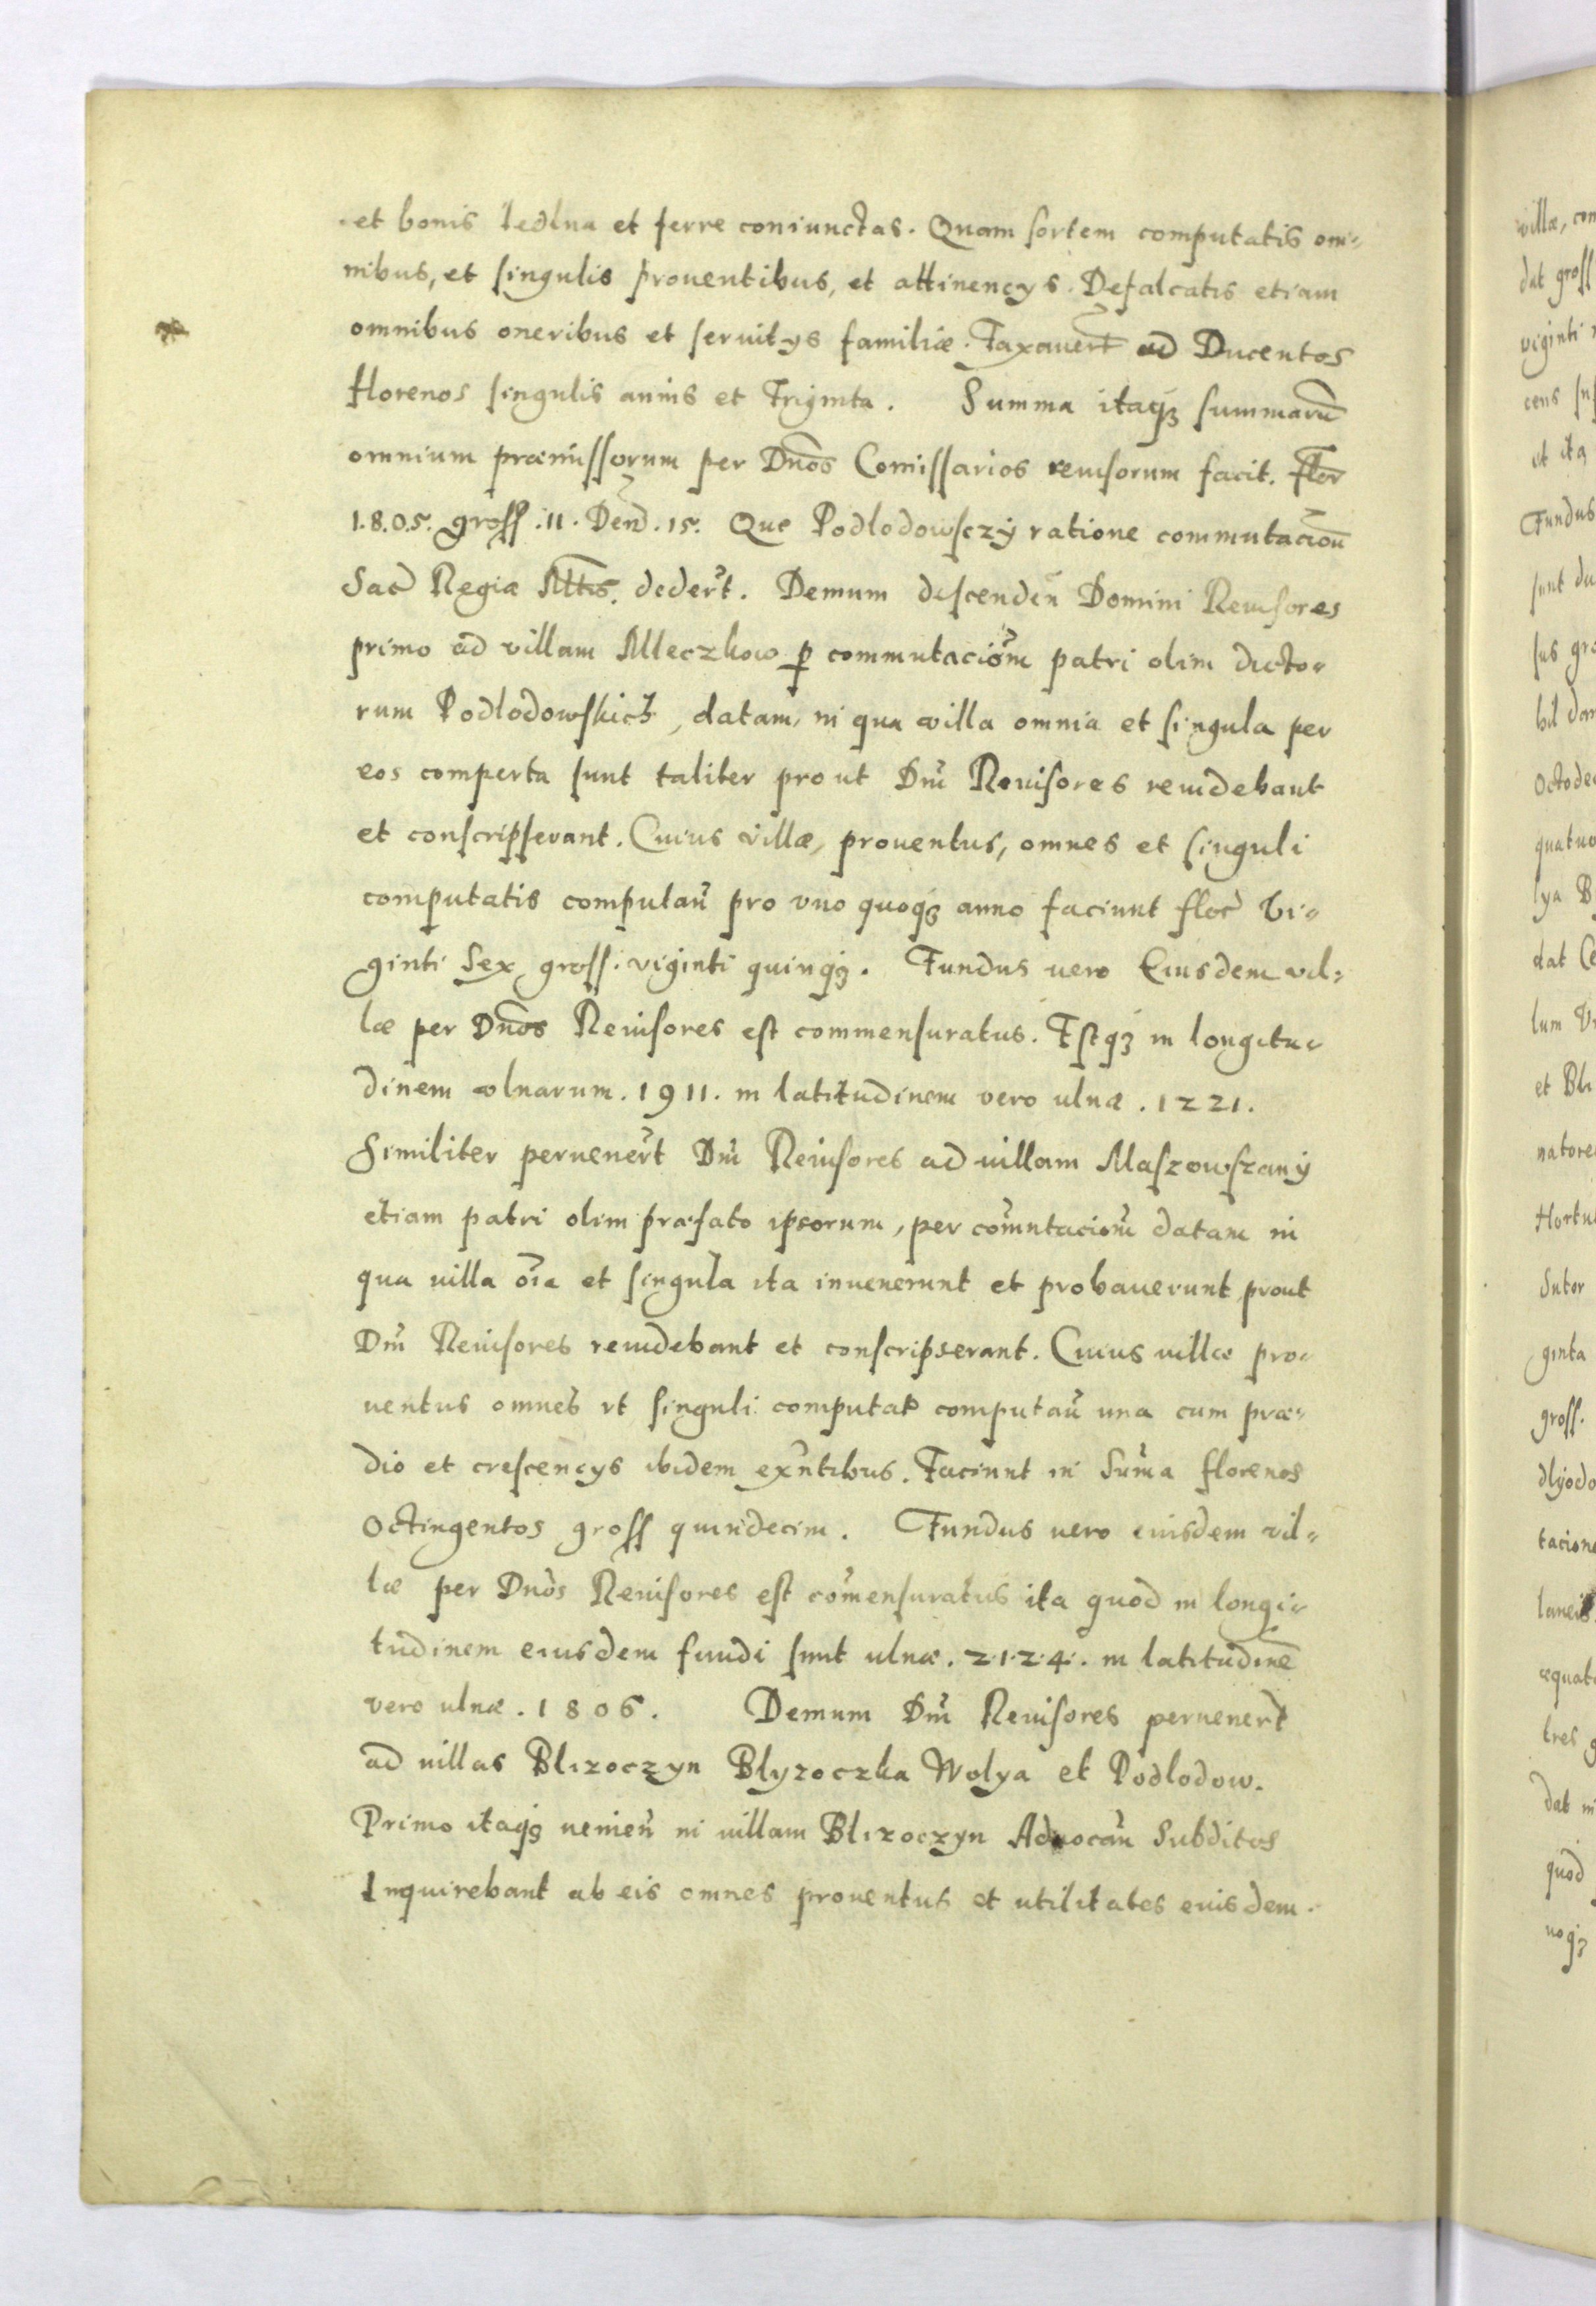 et bonis Iedlna et ferre coniunctas. Quam sortem computatis om=
nibus, et singulis prouentibus, et attinencys. Defalcatis etiam
omnibus oneribus et seruitys familiæ. Taxauer̃t ad Ducentos
florenos singulis annis et Triginta. Summa itaqȝ summarũ
omnium præmissorum per Dños Comissarios reuisorum facit. Flor̃
1.8.0.5. gross .11. Den̄ .15. Que Podlodowsczÿ ratione commutacioñ
Sac̃ Regiæ Mttis. deder̃t. Demum descendeñ Domini Reuisores
primo ad villam Mleczkow ꝑ commutacioñm patri olim dicto=
rum Podlodowskich, datam, in qua villa omnia et singula per
eos comperta sunt taliter pro ut Dñi Reuisores reuidebant
et conscripserant. Cuius villæ, prouentus, omnes et singuli
computatis computañ pro vno quoqȝ anno faciunt flor̃ Vi=
ginti Sex gross. viginti quinqȝ. Fundus uero Eiusdem vil=
læ per Dños Reuisores est commensuratus. Estqȝ in longitu=
dinem vlnarum .1911. in latitudinem vero ulnæ .1221.
Similiter peruener̃t Dñi Reuisores ad uillam Maszowszanÿ
etiam patri olim præfato ipsorum, per com̃utacioñm datam in
qua uilla oĩa et singula ita inuenerunt et probauerunt prout
Dñi Reuisores reuidebant et conscripserant. Cuius uillæ pro=
uentus omnes et singuli computat̃ computañ una cum præ=
dio et crescencys ibidem exñtibus. Faciunt in Sum̃a florenos
Octingentos gross quindecim. Fundus uero euisdem vil=
læ per Dños Reuisores est com̃ensuratus ita quod in longi=
tudinem eiusdem fundi sunt ulnæ .2.1.2.4. in latitudinẽ
vero ulnæ .1806. Demum Dñi Reuisores peruener̃t
ad uillas Blizoczyn Blyzoczka Wolya et Podlodow.
Primo itaqȝ uenieñ in uillam Blizoczyn Aduocañ Subditos
Inquirebant ab eis omnes prouentus et utilitates euisdem.